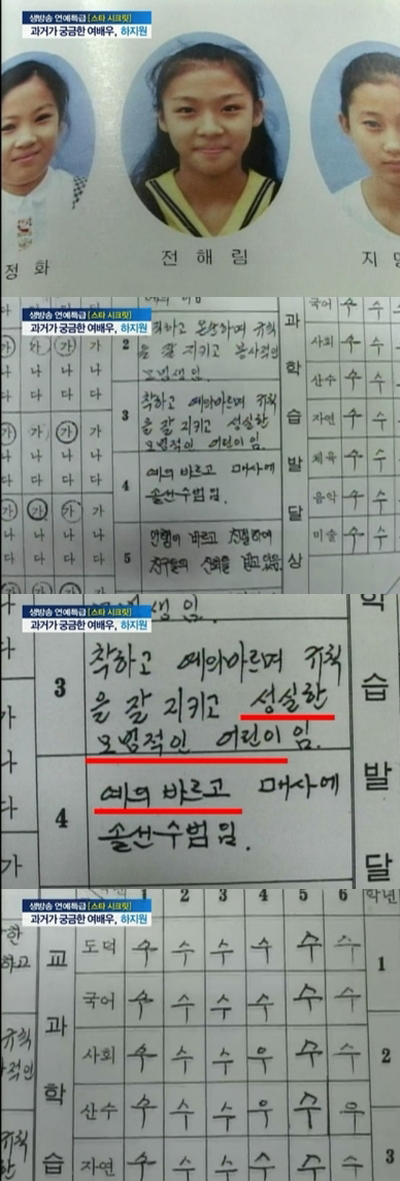 생방송 연예특급 [스타 시크릿]
과거가 궁금한 여배우, 하지원
정 화
전 해 림
지
생방송 연예특급 [스타 시크릿]
과거가 궁금한 여배우, 하지원
다 다 다 다
가 가 가 가
나 나 나 나
다 다 다 다
가 가 가 가
나 나 나 나
다 다 다 다
가 가 가 가
나 나 나 나
다 다 다 다
2
착하고 온순하며 규칙
을 잘 지키고 봉사적인
모범생임.
3
착하고 예의바르며 규칙
을 잘 지키고 성실한
모범적인 어린이 임.
4
예의 바르고 매사에
솔선수범 임.
5
언행이 바르고 친절하여
친구들의 신뢰를 받고 있음.
과 학 습 발 달 상
국어 수 수
사회 수 수
산수 수 수
자연 수 수
체육 수 수
음악 수 수
미술 수 수
생방송 연예특급 [스타 시크릿]
과거가 궁금한 여배우, 하지원
생 임.
3
착하고 예의바르며 규칙
을 잘 지키고 성실한
모범적인 어린이 임.
4
예의 바르고 매사에
솔선수범 임.
학 습 발 달
다
가
나
다
가
생방송 연예특급 [스타 시크릿]
과거가 궁금한 여배우, 하지원
1 2 3 4 5 6 학년
교 과 학 습
도덕 수 수 수 수 수 수
국어 수 수 수 수 수 수
사회 수 수 수 우 수 수
산수 수 수 수 우 수 우
자연 수 수 수 수 수 수
1
2
3
한
하고
규칙
적인
규칙
한